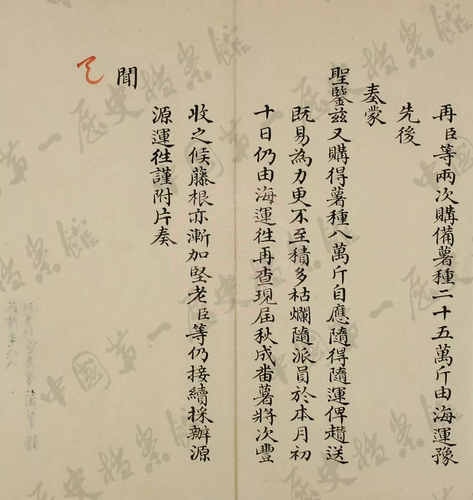 再臣等兩次購備薯種二十五萬斤由海運豫
先後
奏蒙
聖鑒茲又購得薯種八萬斤自應隨得隨運俾趲送
既易為力更不至積多枯爛隨派員於本月初
十日仍由海運往再查現屆秋成畨薯將次豐
收之候藤根亦漸加堅老臣等仍接續採辦源
源運往謹附片奏
聞
中國第一歷史檔案館